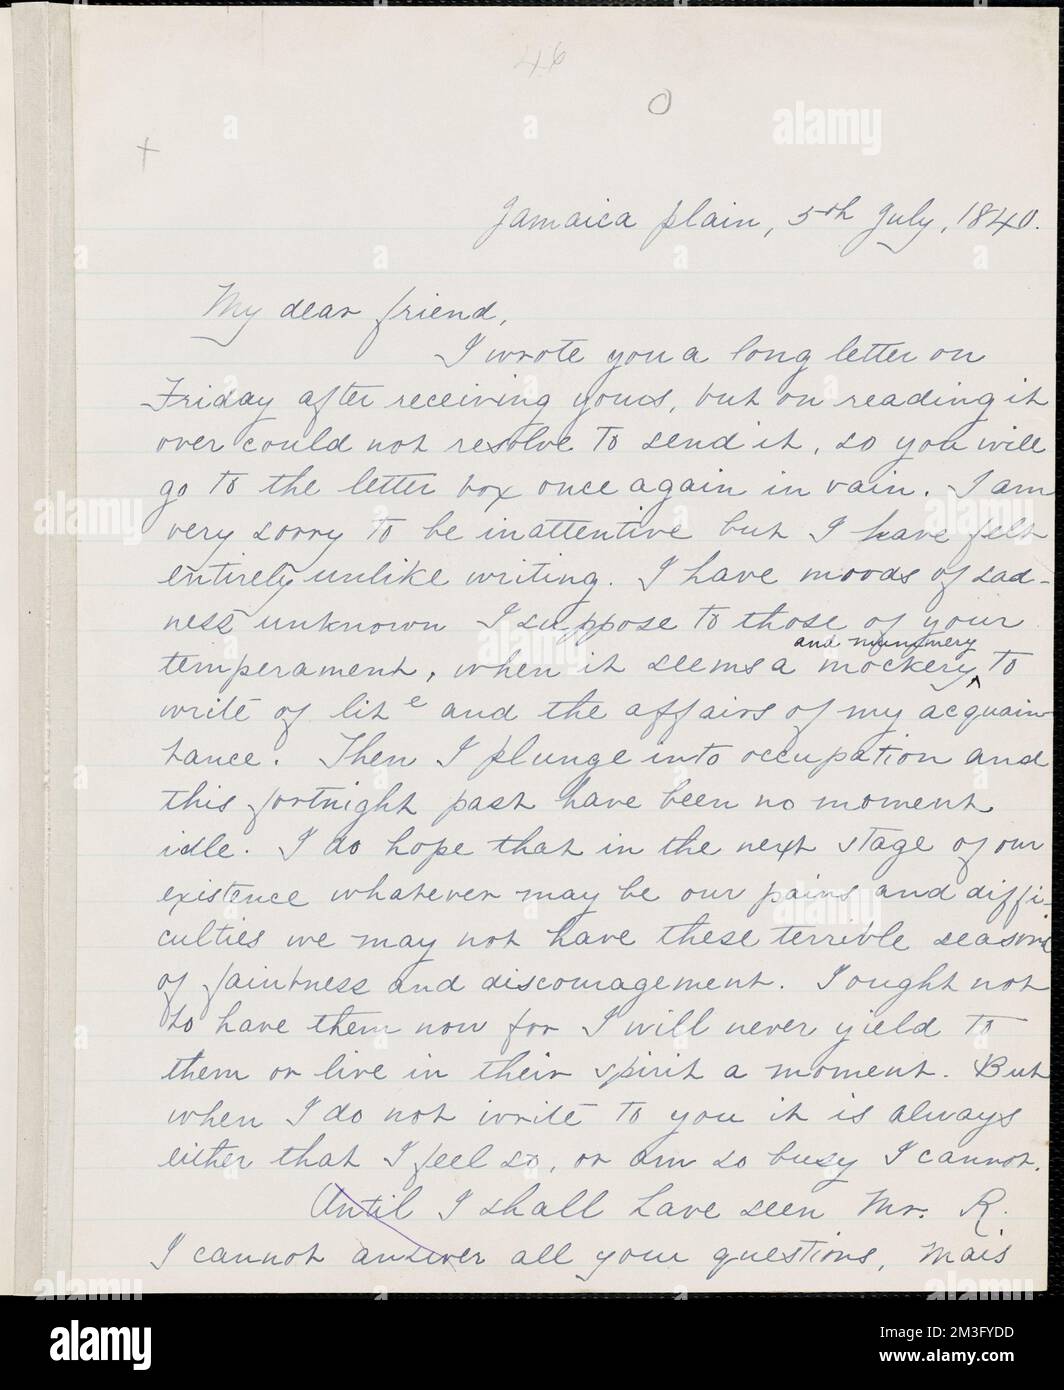 46
Jamaica plain, 5th July, 1840.
My dear friend,
I wrote you a long letter on
Friday after receiving yours, but on reading it
over could not resolve to send it, so you will
go to the letter box once again in vain. I am
very sorry to be inattentive but I have felt
entirely unlike writing. I have moods of sad-
ness unknown I suppose to those of your
and mummery
temperament, when it seems a mockery, to
write of lit e and the affairs of my acquain-
tance. Then I plunge into occupation and
this fortnight past have been no moment
idle. I do hope that in the next stage of our
existence whatever may be our pains and diffi-
culties we may not have these terrible seasons
of faintness and discouragement. I ought not
to have them now for I will never yield to
them or live in their spirit a moment. But
when I do not write to you it is always
either that I feel so, or am so busy I cannot.
Until I shall have seen Mr. R.
I cannot answer all your questions, Mais
alamy
Image ID: 2M3FYDD
www.alamy.com